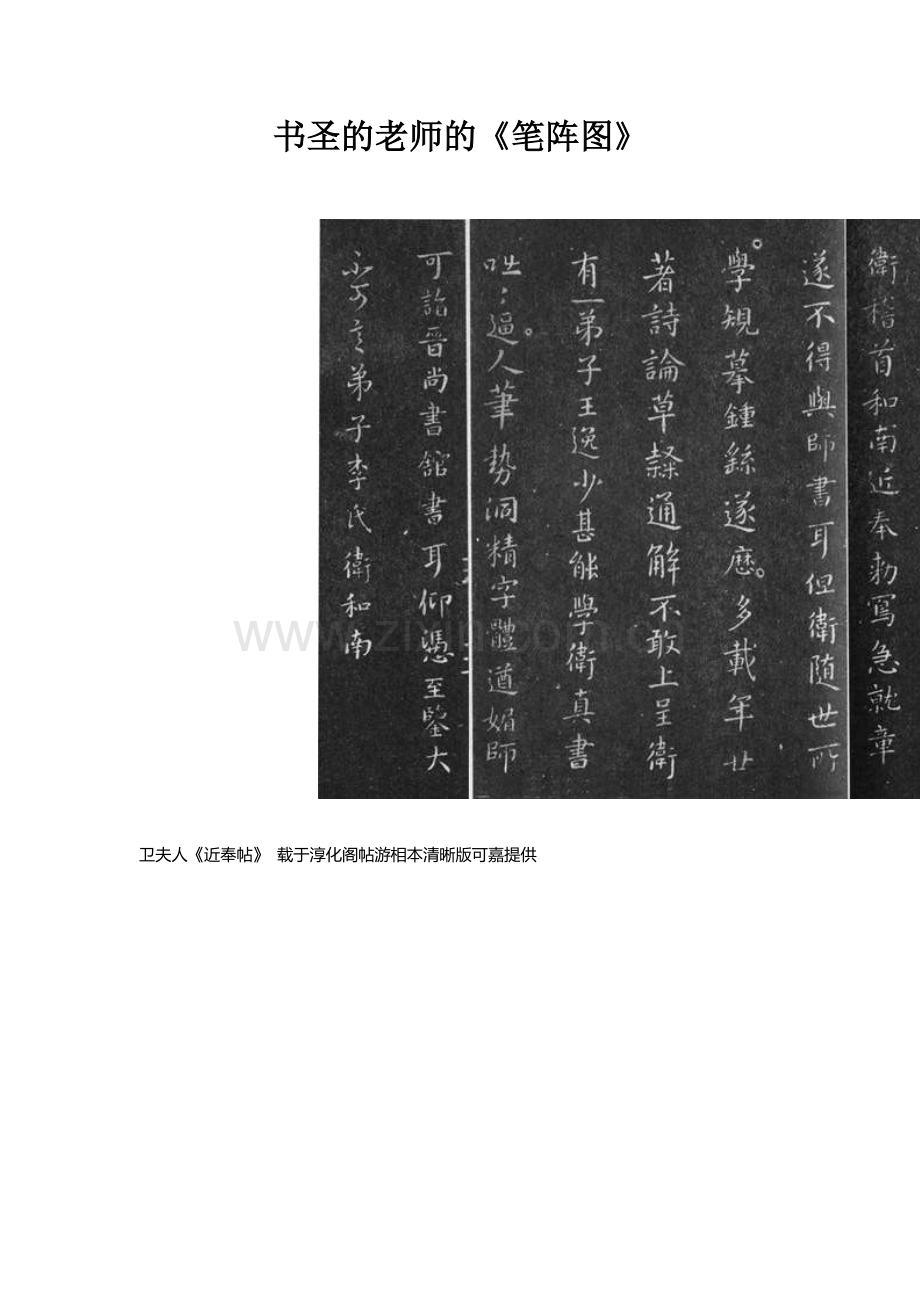 书圣的老师的《笔阵图》
衛稽首和南近奉勅寫急就章
遂不得與師書耳但衛隨世所
學規摹鍾繇遂歷多載年廿
著詩論草隸通解不敢上呈衛
有一弟子王逸少甚能學衛真書
咄〻逼人筆势洞精字體遒媚師
可詣晋尚書舘書耳仰憑至鑒大
不可言弟子李氏衛和南
www.zixin.com.cn
卫夫人《近奉帖》 载于淳化阁帖游相本清晰版可嘉提供